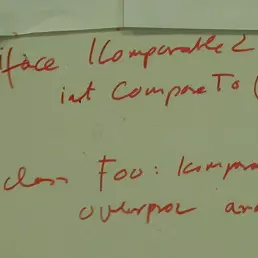 rface IComparable<
int CompareTo (
class Foo: Icompara